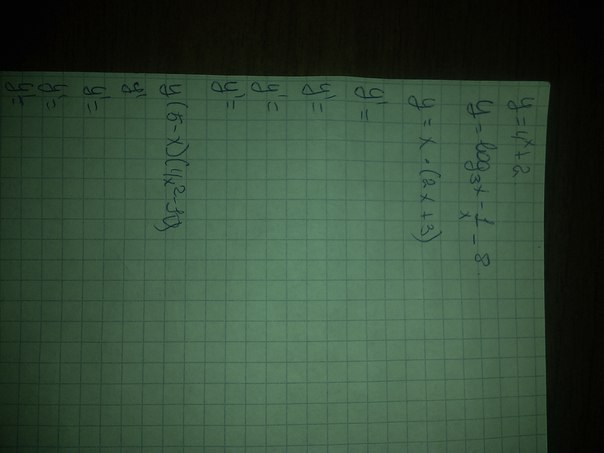 y = 4ˣ + 2.
y = log₃x - 1/x - 8.
y = x · (2x + 3)
y' =
y' =
y' =
y' =
y (5 - x)(4x² - 10)
y'
y' =
y' =
y' =